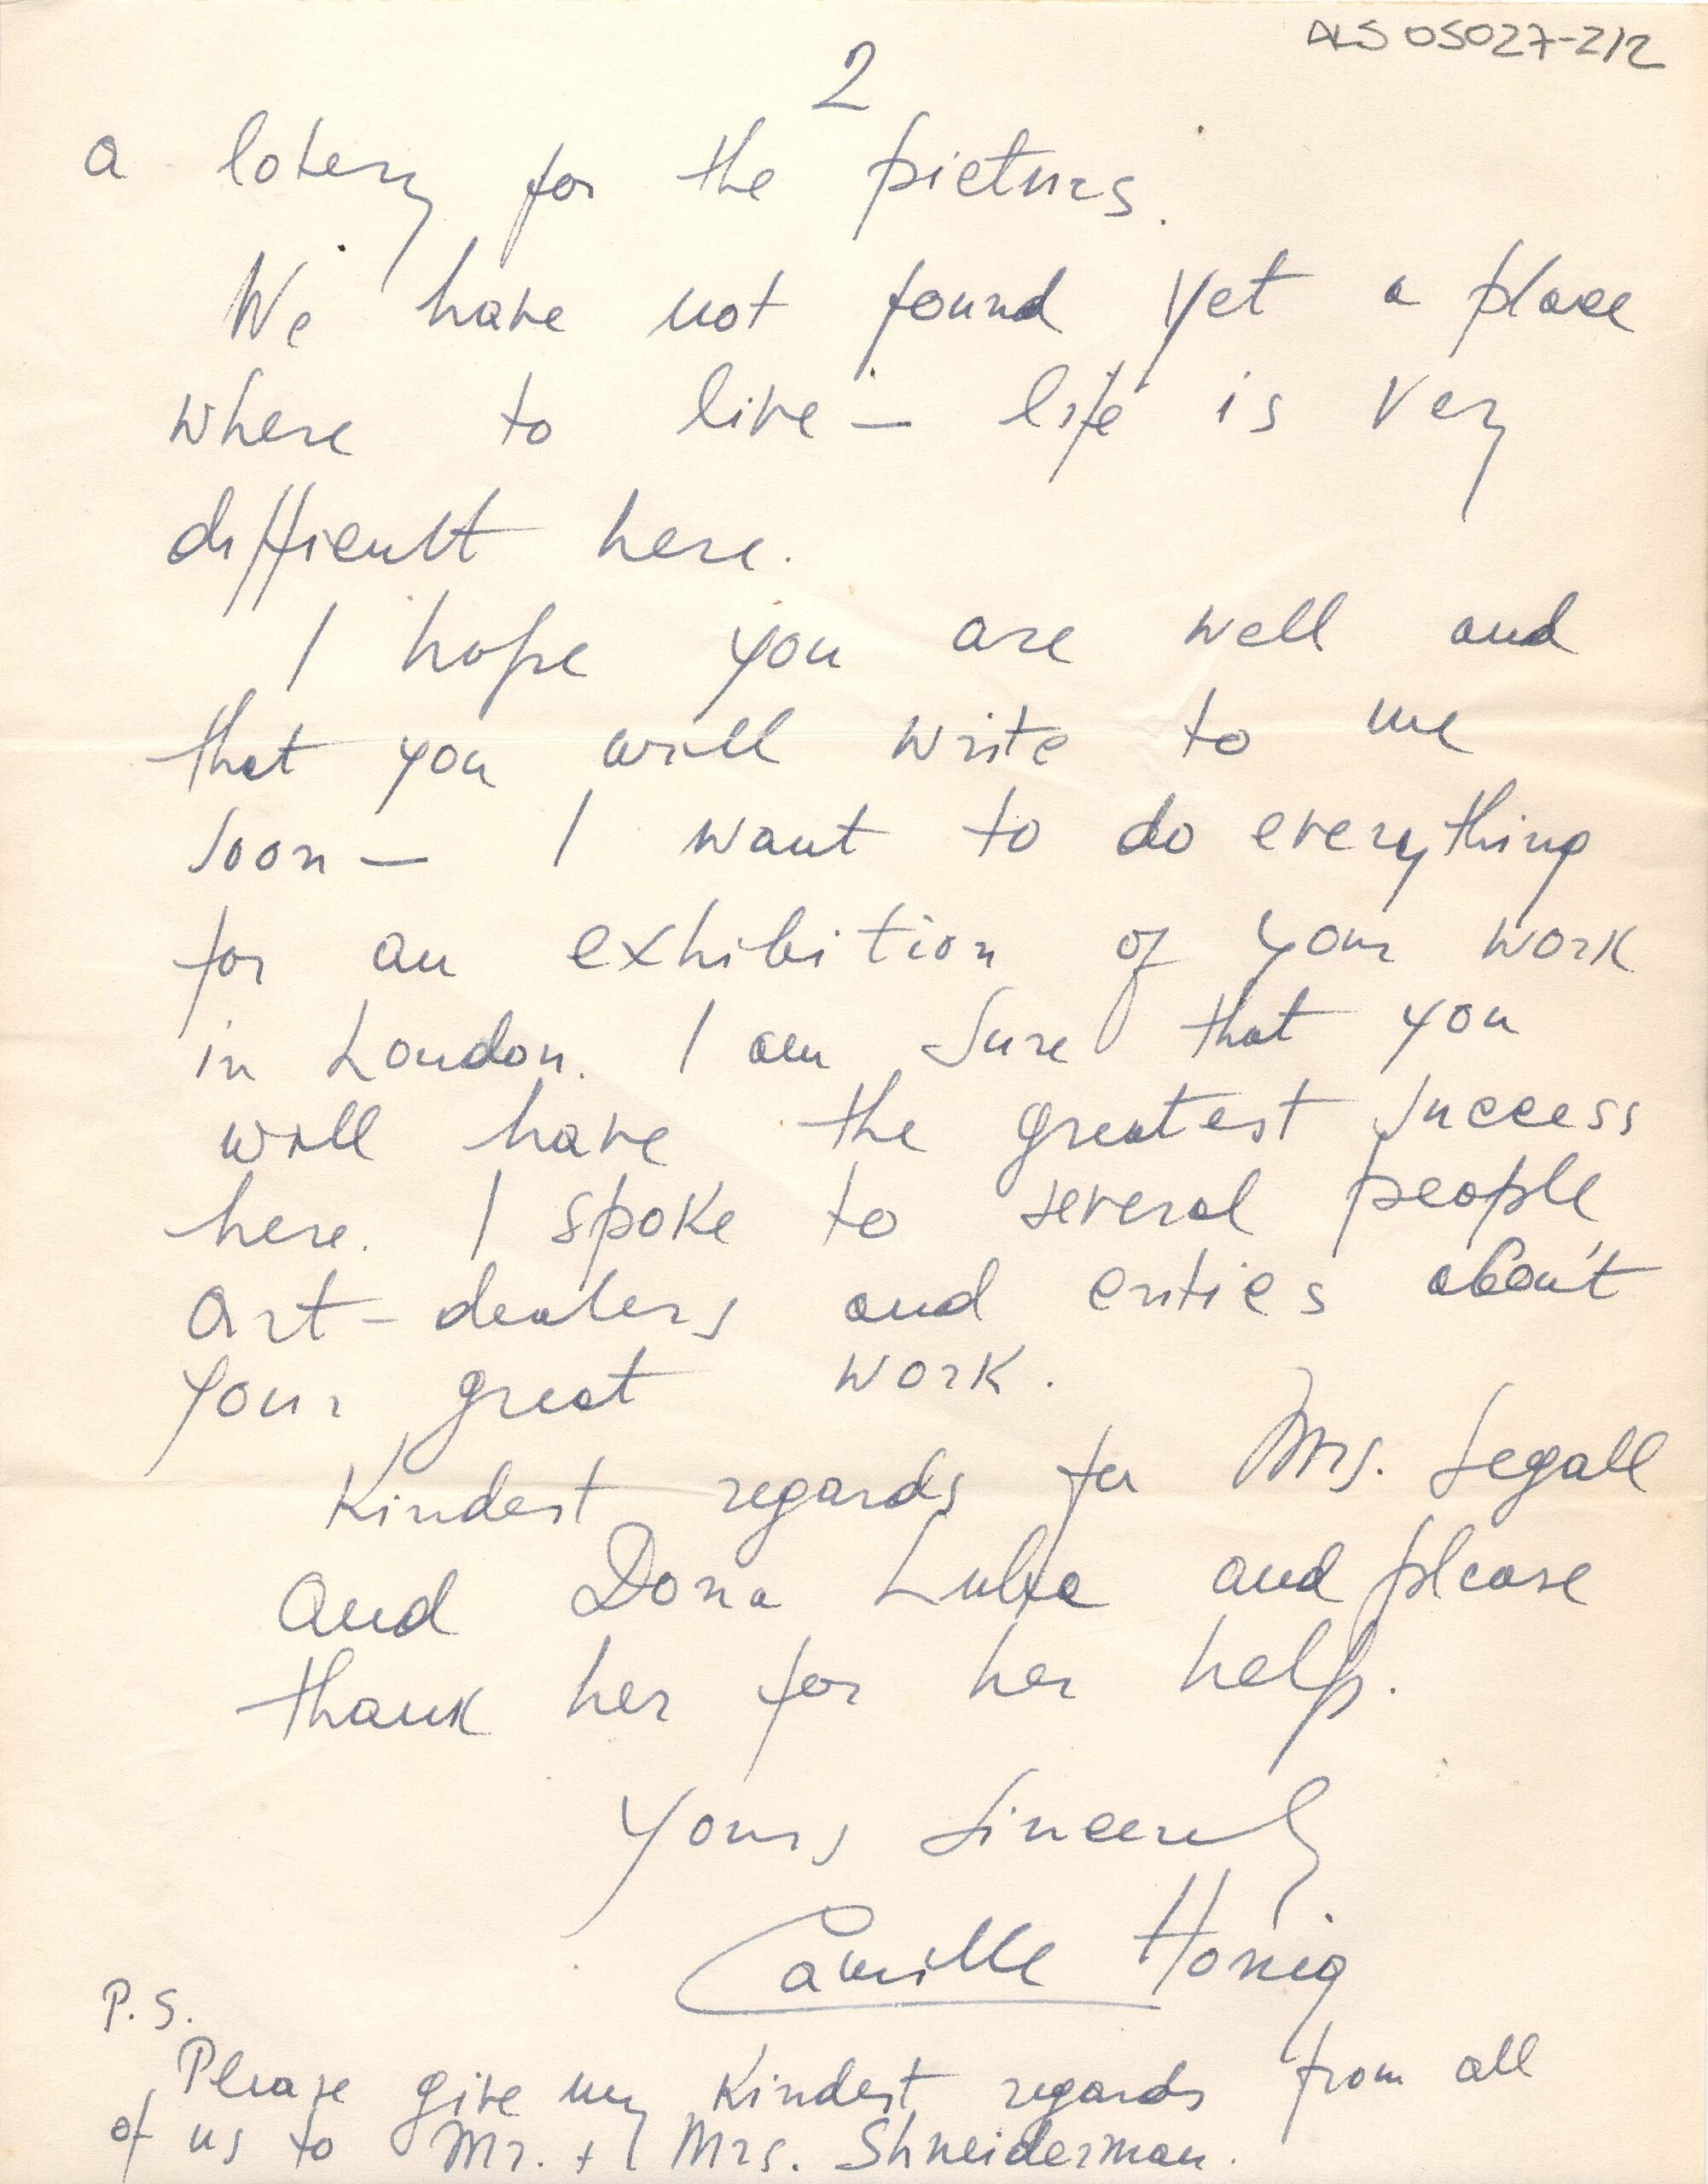 ALS 05027-2/2
2
a lotery for the picturs.
We have not found yet a place
where to live — life is very
difficult here.
I hope you are well and
that you will write to me
soon — I want to do everything
for an exhibition of your work
in London. I am sure that you
will have the greatest success
here. I spoke to several people
art-dealers and critics about
your great work.
Kindest regards for Mrs. Segall
and Dona Luba and please
thank her for her help.
Yours sincerely
Camille Honig
P.S.
Please give my kindest regards from all
of us to Mr. + Mrs. Shneiderman.